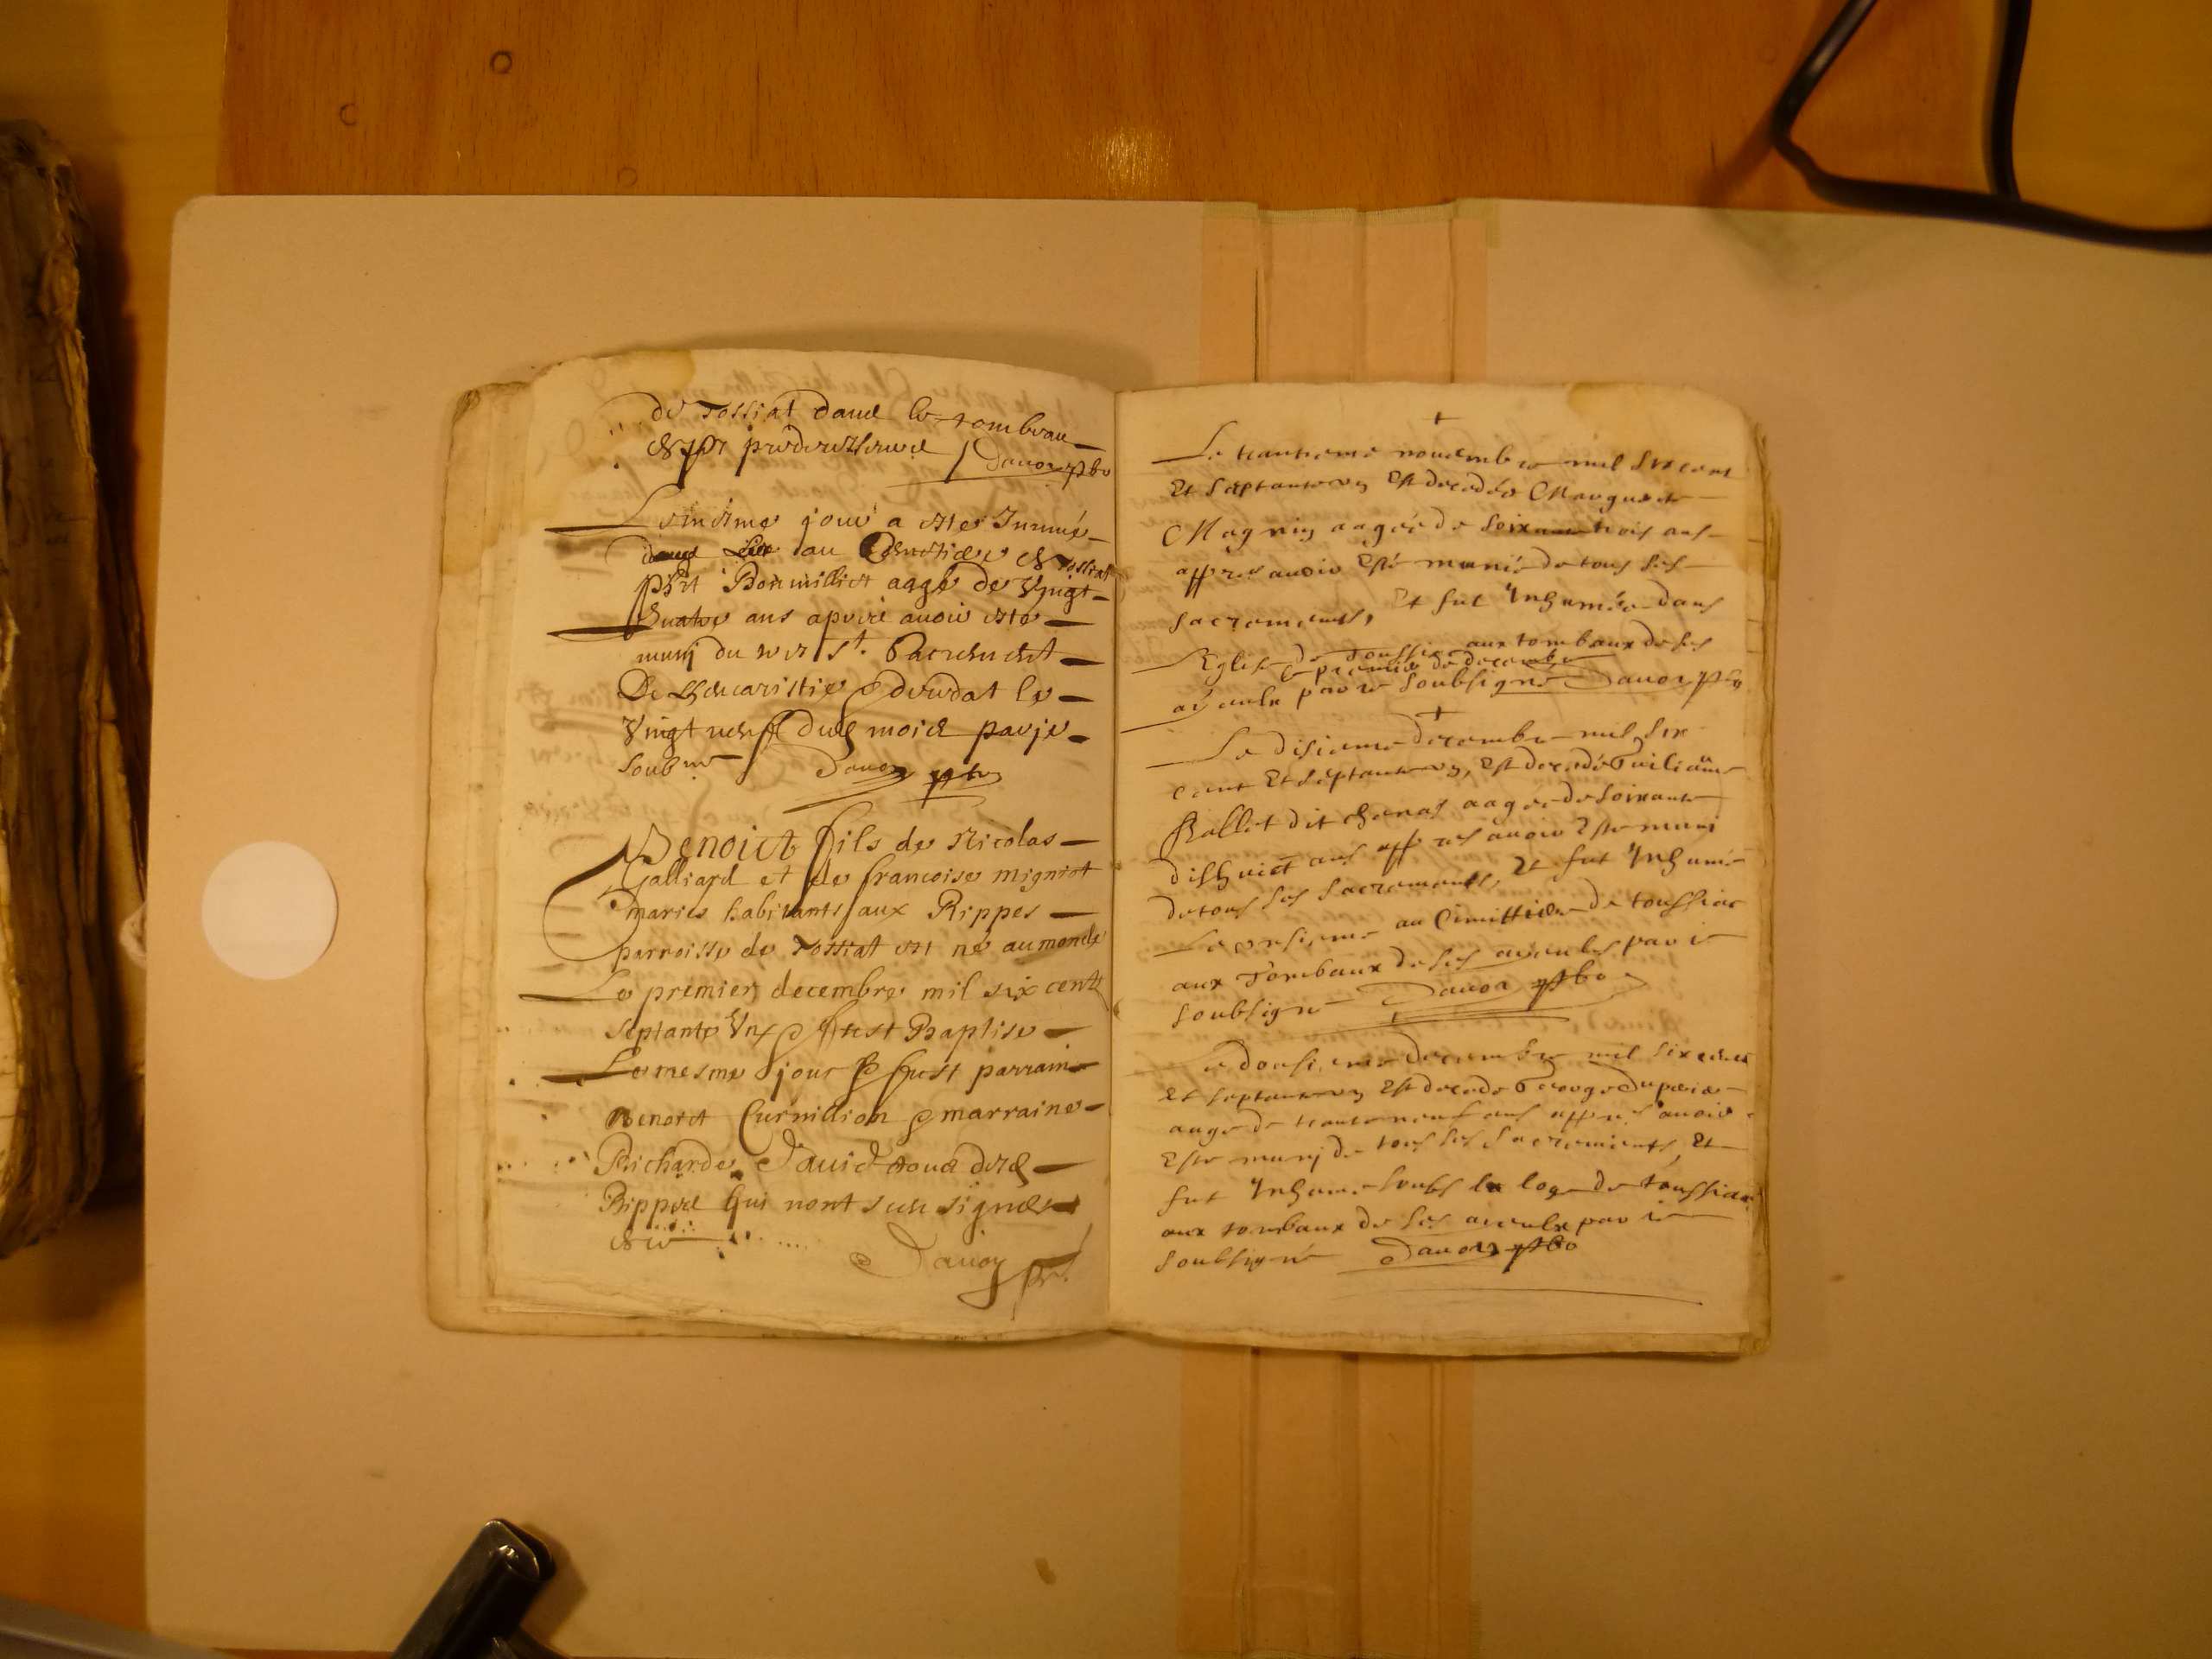 de Tossiat dans le tombeau
de ses predecesseurs Dauon pbr
Le mesme jour a este Inumé
au Cemetiere de Tossiat
Bonmillict aagé de Vingt
Quatre ans apres auoir este
muni du tres st. Sacrement
De Leucaristie decedat le
Vingt neuf dud mois par je
soubne Dauon pbr
Benoict fils de Nicolas
Galliard et de francoise mignot
maries habitants aux Rippes
parroisse de Tossiat est né au monde
Le premier decembre mil six cent
septante Vn & fust Baptise
Le mesme jour & fust parrain
Benoict Curnillion & marraine
Richarde Dauid tous des
Rippes qui nont sceu signer
Dauon pbr
Le trantieme nouembre mil six cent
Et septante vn Est decedée Marguerite
Magnin aagée de soixante trois ans
appres auoir Esté munié de tous ses
sacrements, Et fut Inhumée dans
l'Eglise de Toussia aux tombaux de ses
le premier de decembre
ayeulx par ie soubsigné Dauon pbr
Le disieme decembre mil six
cent Et septante vn, Est decedé Guiliaume
Ballet dit chanas aagée de soixante
dishuict ans appres auoir Este muni
de tous ses sacrements, Et fut Inhumé
Le onsieme au Cimittiere de toussiat
aux Tombaux de ses ayeules par ie
soubsigne Dauon pbr
Le dousieme decembre mil six cent
Et septante vn Est decede George Dupuis
aage de trante neuf ans appres auoir
Este muni de tous ses sacrements, Et
fut Inhume soubs la loge de toussiat
aux tombaux de ses ayeulx par ie
soubsigné Dauon pbr